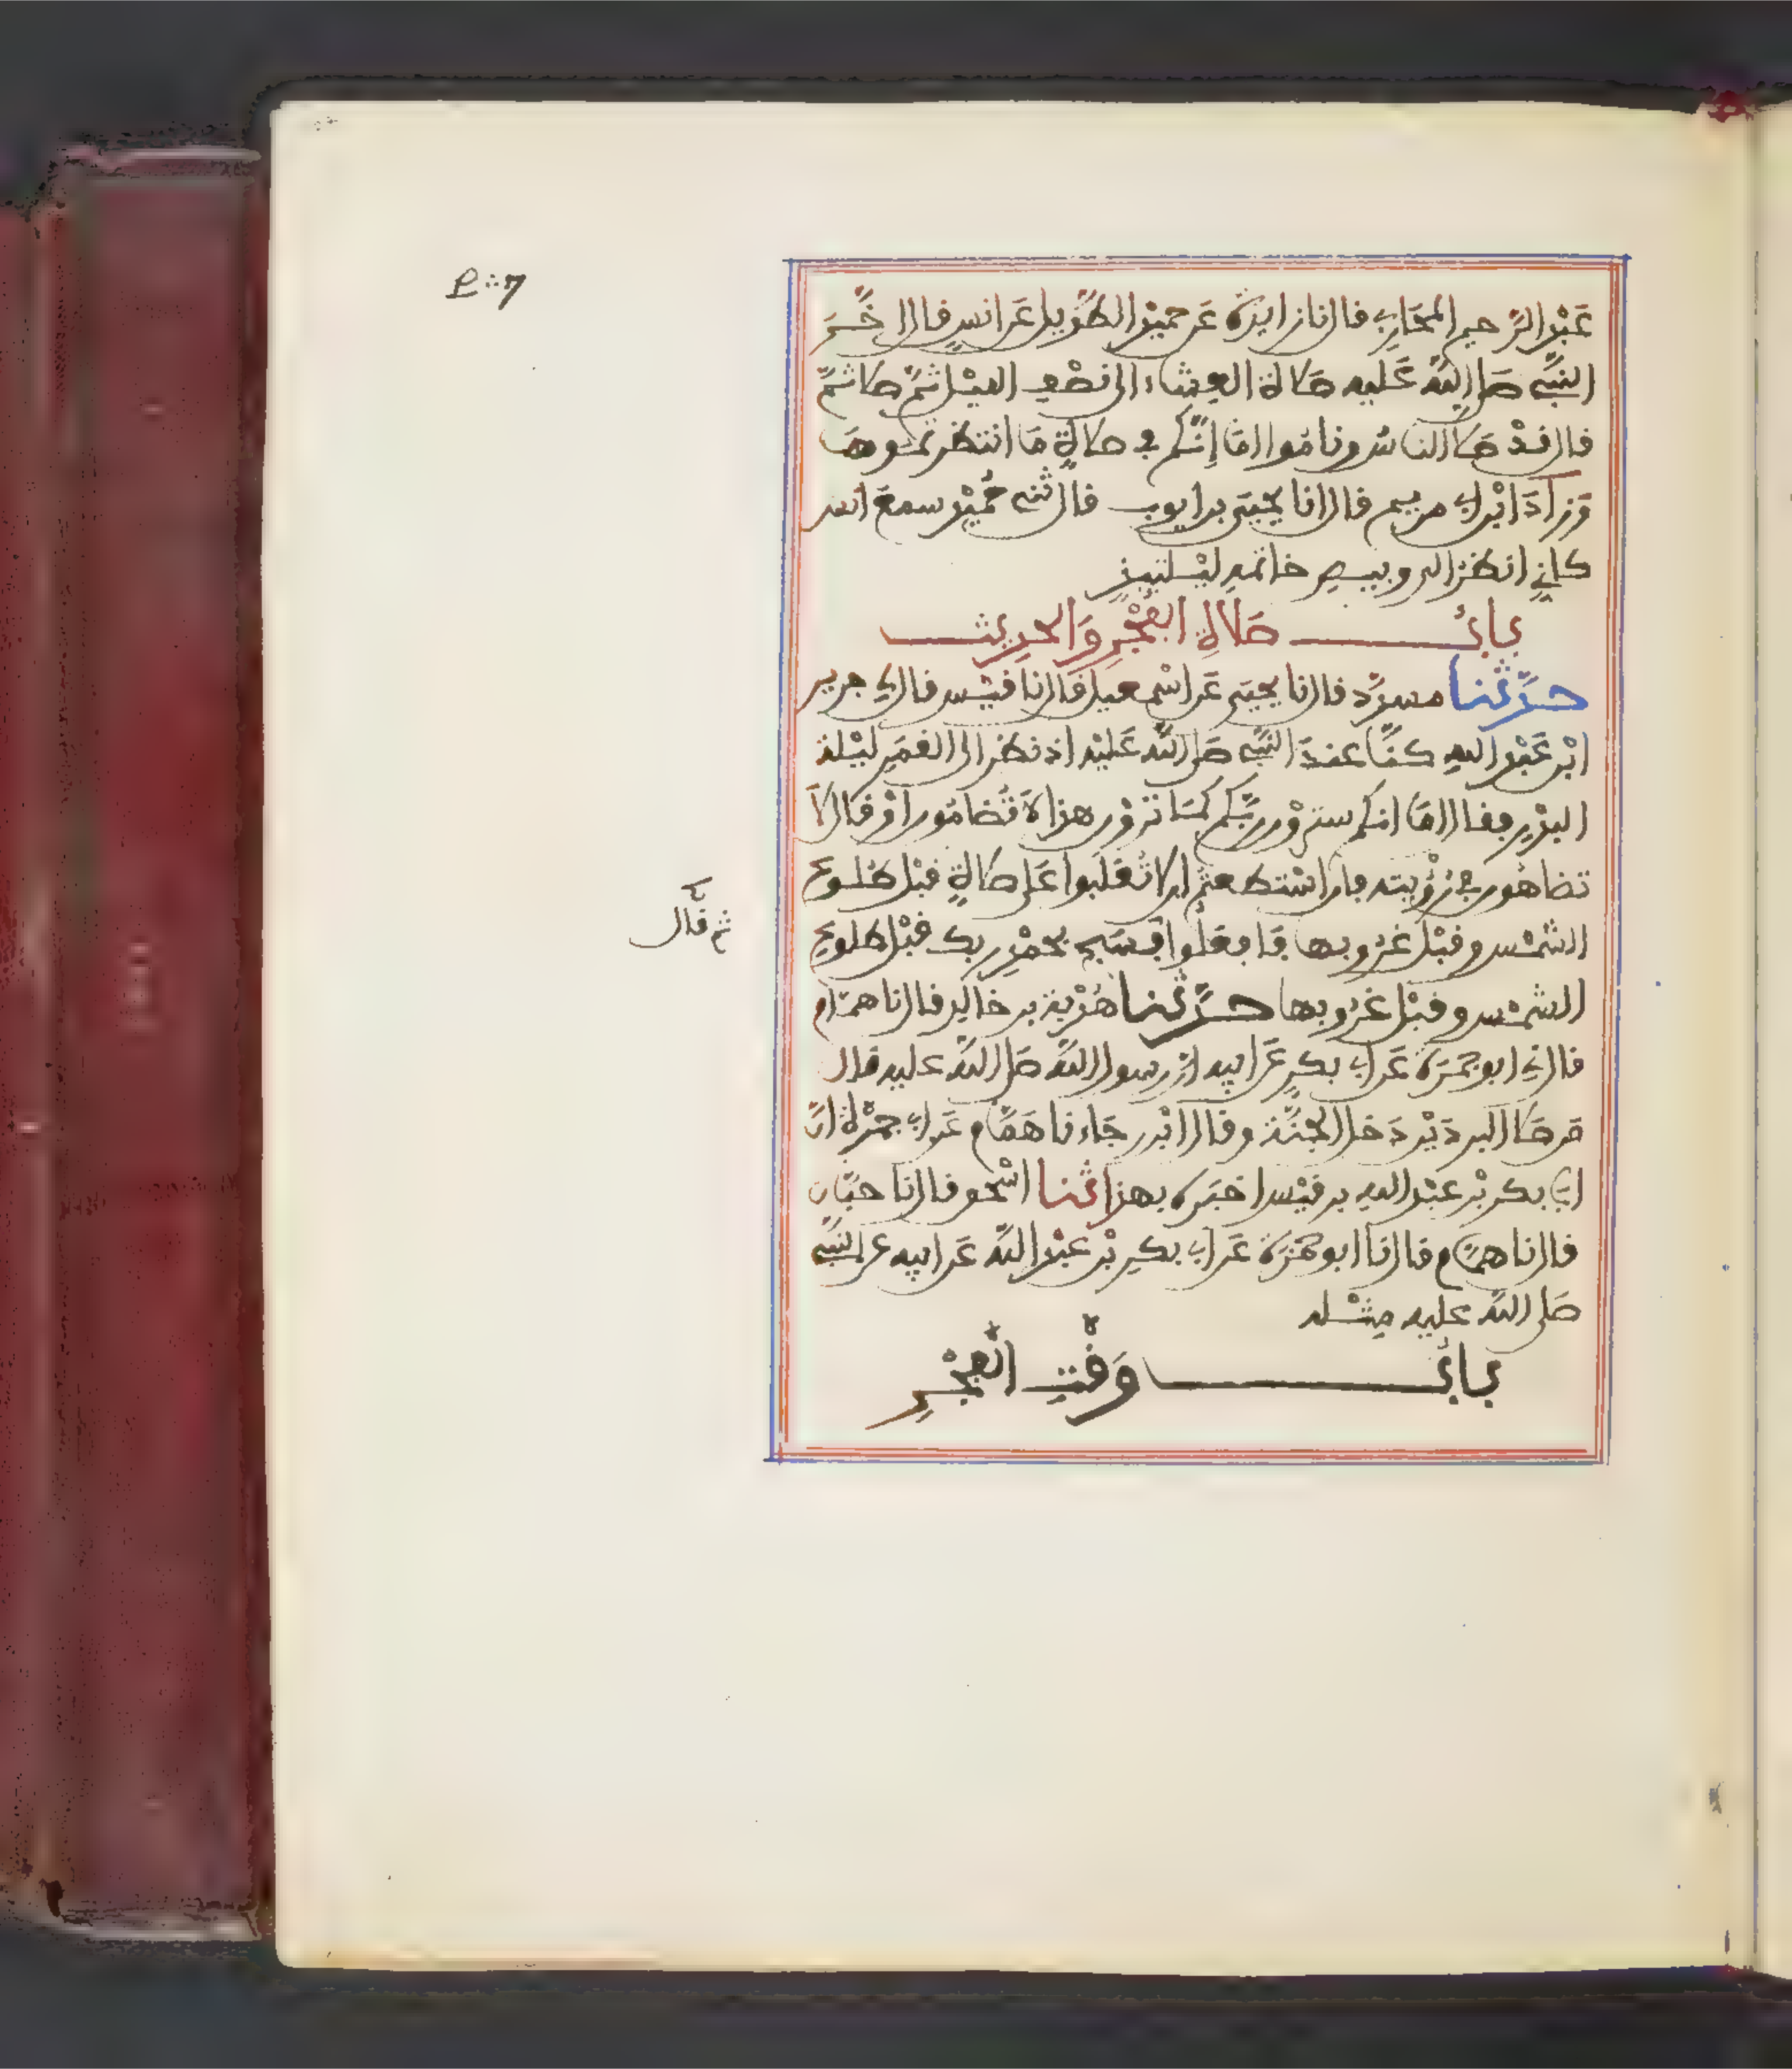 عَبْد الرَّحيم المحَاربي قال نا زايدة عَن حميْد الطّويل عَن انسٍ قال اخَّرَ
النبيّ صَلى اللّه عَليه صَلاة العِشاء الى نصْف الليْل ثمّ صلى ثمّ
قال قدْ صَلى الناسُ ونامُوا امَا إنّكم في صلاةٍ مَا انتظرتموهَا
وَزادَ ابْن ابي مريم قال انا يحيَى بن ايوب قال ثني حُميْد سمعَ انسا
كأنّي انظر الى وبيص خاتمهِ ليْلتيذٍ
بابُ صَلاةِ الفجْرِ وَالحديث
حدّثنا مسدّد قال نا يحيَى عَن اسْمعيل قال نا قيْس قال لي جرير
ابْن عَبْد الله كنّا عندَ النبيّ صَلى اللّه عَليْه اذ نظر الى القمَرِ ليْلة
البدْرِ فقال امَا انكم ستروْن ربّكم كمَا تروْن هذا لَا تُضامُّون اوْ قال لَا
تضاهُون في رُؤْيته فان اسْتطعتم ان لا تُغْلَبوا عَلى صلاةٍ قبْل طلوع
الشمْس وقبْل غرُوبها فَافعَلوا فسَبح بحمْدِ ربك قبْل طلوع
ثم قال
الشمْس وقبْل غرُوبها حدّثنا هُدْبة بن خالدٍ قال نا همّام
قال ني ابو جمْرَة عَن ابي بكرٍ عَن ابيه انّ رسول اللّه صَلى اللّه عليه قال
مَن صَلى البردَيْن دَخل الجَنّة وقال ابْن رجَاء نا هَمّام عَن ابي جمْرة انّ
ابي بكر بْن عبْد الله بن قيْس اخبَره بهذا ثنا اسْحق قال نا حبّان
قال نا همّام قال نا ابو جمْرَة عَن ابي بكرِ بْن عبْد اللّه عَن ابيه عن النبيّ
صَلى اللّه عليه مِثْله
بابُ وَقْتِ الفجْرِ